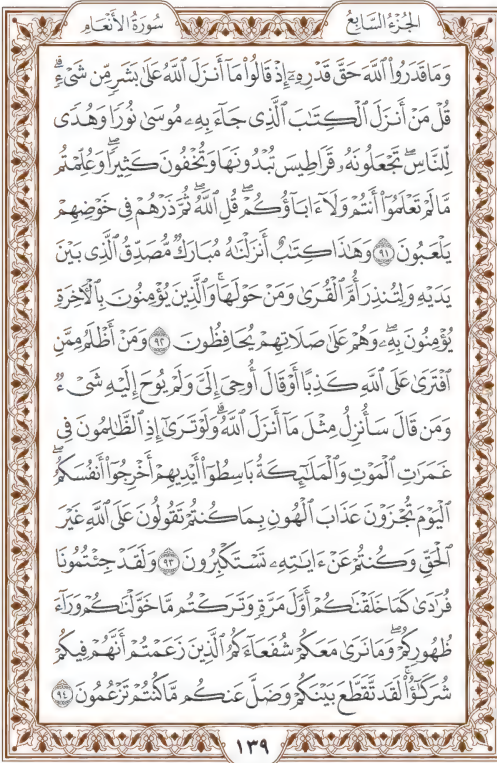 الجُزْءُ السَّابِعُ
سُورَةُ الأَنْعَامِ
وَمَا قَدَرُوا۟ ٱللَّهَ حَقَّ قَدْرِهِۦٓ إِذْ قَالُوا۟ مَآ أَنزَلَ ٱللَّهُ عَلَىٰ بَشَرٍ مِّن شَىْءٍ ۗ
قُلْ مَنْ أَنزَلَ ٱلْكِتَٰبَ ٱلَّذِى جَآءَ بِهِۦ مُوسَىٰ نُورًا وَهُدًى
لِّلنَّاسِ ۖ تَجْعَلُونَهُۥ قَرَاطِيسَ تُبْدُونَهَا وَتُخْفُونَ كَثِيرًا ۖ وَعُلِّمْتُم
مَّا لَمْ تَعْلَمُوٓا۟ أَنتُمْ وَلَآ ءَابَآؤُكُمْ ۖ قُلِ ٱللَّهُ ۖ ثُمَّ ذَرْهُمْ فِى خَوْضِهِمْ
يَلْعَبُونَ ٩١ وَهَٰذَا كِتَٰبٌ أَنزَلْنَٰهُ مُبَارَكٌ مُّصَدِّقُ ٱلَّذِى بَيْنَ
يَدَيْهِ وَلِتُنذِرَ أُمَّ ٱلْقُرَىٰ وَمَنْ حَوْلَهَا ۚ وَٱلَّذِينَ يُؤْمِنُونَ بِٱلْءَاخِرَةِ
يُؤْمِنُونَ بِهِۦ ۖ وَهُمْ عَلَىٰ صَلَاتِهِمْ يُحَافِظُونَ ٩٢ وَمَنْ أَظْلَمُ مِمَّنِ
ٱفْتَرَىٰ عَلَى ٱللَّهِ كَذِبًا أَوْ قَالَ أُوحِىَ إِلَىَّ وَلَمْ يُوحَ إِلَيْهِ شَىْءٌ
وَمَن قَالَ سَأُنزِلُ مِثْلَ مَآ أَنزَلَ ٱللَّهُ ۗ وَلَوْ تَرَىٰٓ إِذِ ٱلظَّٰلِمُونَ فِى
غَمَرَٰتِ ٱلْمَوْتِ وَٱلْمَلَٰٓئِكَةُ بَاسِطُوٓا۟ أَيْدِيهِمْ أَخْرِجُوٓا۟ أَنفُسَكُمُ ۖ
ٱلْيَوْمَ تُجْزَوْنَ عَذَابَ ٱلْهُونِ بِمَا كُنتُمْ تَقُولُونَ عَلَى ٱللَّهِ غَيْرَ
ٱلْحَقِّ وَكُنتُمْ عَنْ ءَايَٰتِهِۦ تَسْتَكْبِرُونَ ٩٣ وَلَقَدْ جِئْتُمُونَا
فُرَٰدَىٰ كَمَا خَلَقْنَٰكُمْ أَوَّلَ مَرَّةٍ وَتَرَكْتُم مَّا خَوَّلْنَٰكُمْ وَرَآءَ
ظُهُورِكُمْ ۖ وَمَا نَرَىٰ مَعَكُمْ شُفَعَآءَكُمُ ٱلَّذِينَ زَعَمْتُمْ أَنَّهُمْ فِيكُمْ
شُرَكَٰٓؤُا۟ ۚ لَقَد تَّقَطَّعَ بَيْنَكُمْ وَضَلَّ عَنكُم مَّا كُنتُمْ تَزْعُمُونَ ٩٤
١٣٩